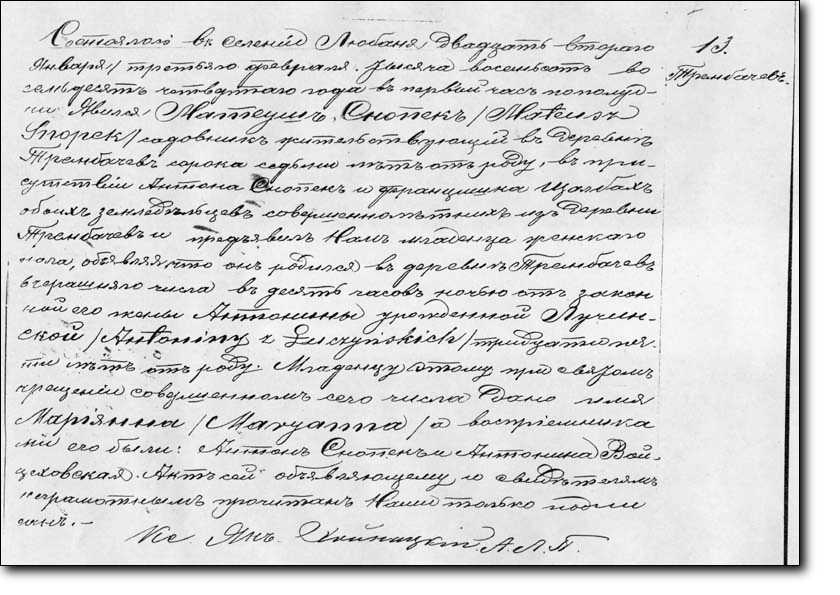 13
Трембачевъ
Состоялось въ селеніи Любаня двадцать втораго
Января/третьяго февраля тысяча восемьсотъ во
семьдесятъ четвертаго года въ первый часъ пополуд-
ни. Явился Матеушъ Снопекъ /Mateusz
Snopek/ садовникъ жительствующій въ деревнѣ
Трембачевъ сорока седьми лѣтъ отъ роду, въ при-
сутствіи Антона Снопекъ и францишка
обоихъ земледѣльцевъ совершеннолѣтнихъ изъ деревни
Трембачевъ и предъявилъ Намъ младенца женскаго
пола, объявляя что онъ родился въ деревнѣ Трембачевъ
вчерашняго числа въ десять часовъ ночью отъ закон
ной его жены Антонины урожденной Лучин-
ской /Antoniny z Łuczyńskich/ тридцати пя-
ти лѣтъ отъ роду. Младенцу этому при святомъ
крещеніи совершенномъ сего числа дано имя
Маріянна /Maryanna/ а воспріемника
ми его были: Антонъ Снопекъ и Антонина Вой-
цеховская. Актъ сей объявляющему и свидѣтелямъ
неграмотнымъ прочитанъ Нами только подпи
санъ. -
Кс. Янъ Хойницкій А.Л.П.